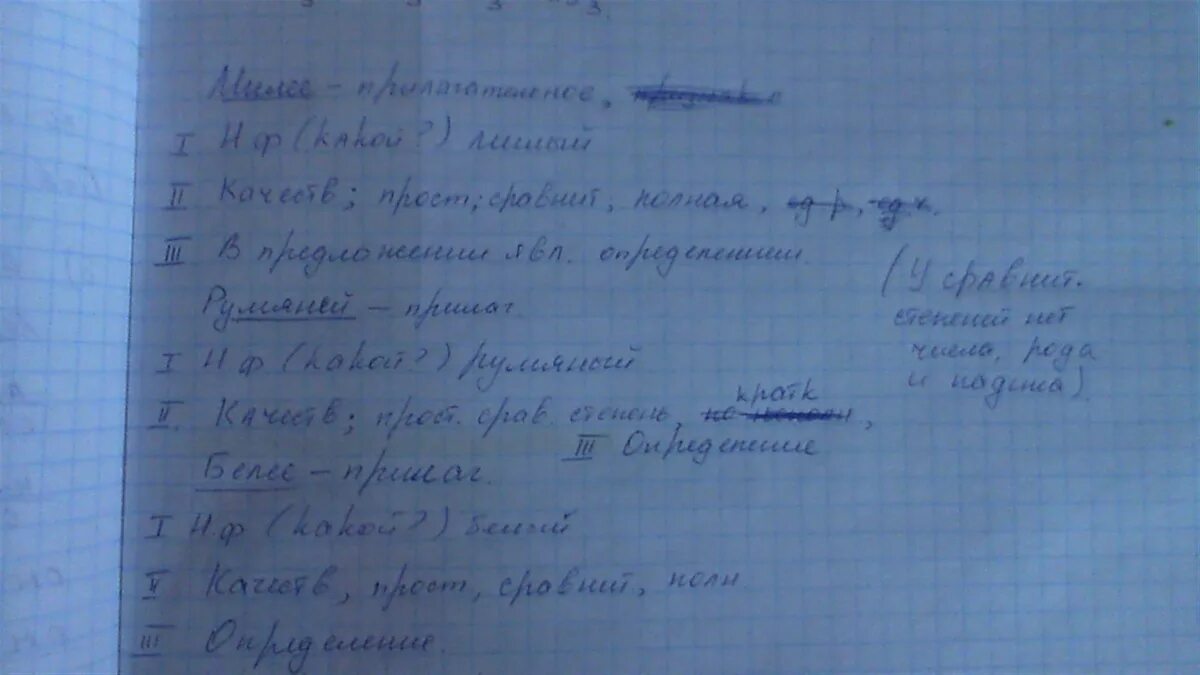 Милее – прилагательное,
I Н ф (какой?) милый
II Качеств; прост; сравнит, полная, ед р, ед ч.
III В предложении явл. определением.
Румяней – прилаг.
(У сравнит.
степеней нет
числа, рода
и падежа)
I Н ф (какой?) румяный
II Качеств; прост. срав. степень, кратк,
III Определение
Белее – прилаг.
I Н.ф (какой?) белый
II Качеств, прост, сравнит, полн
III Определение.